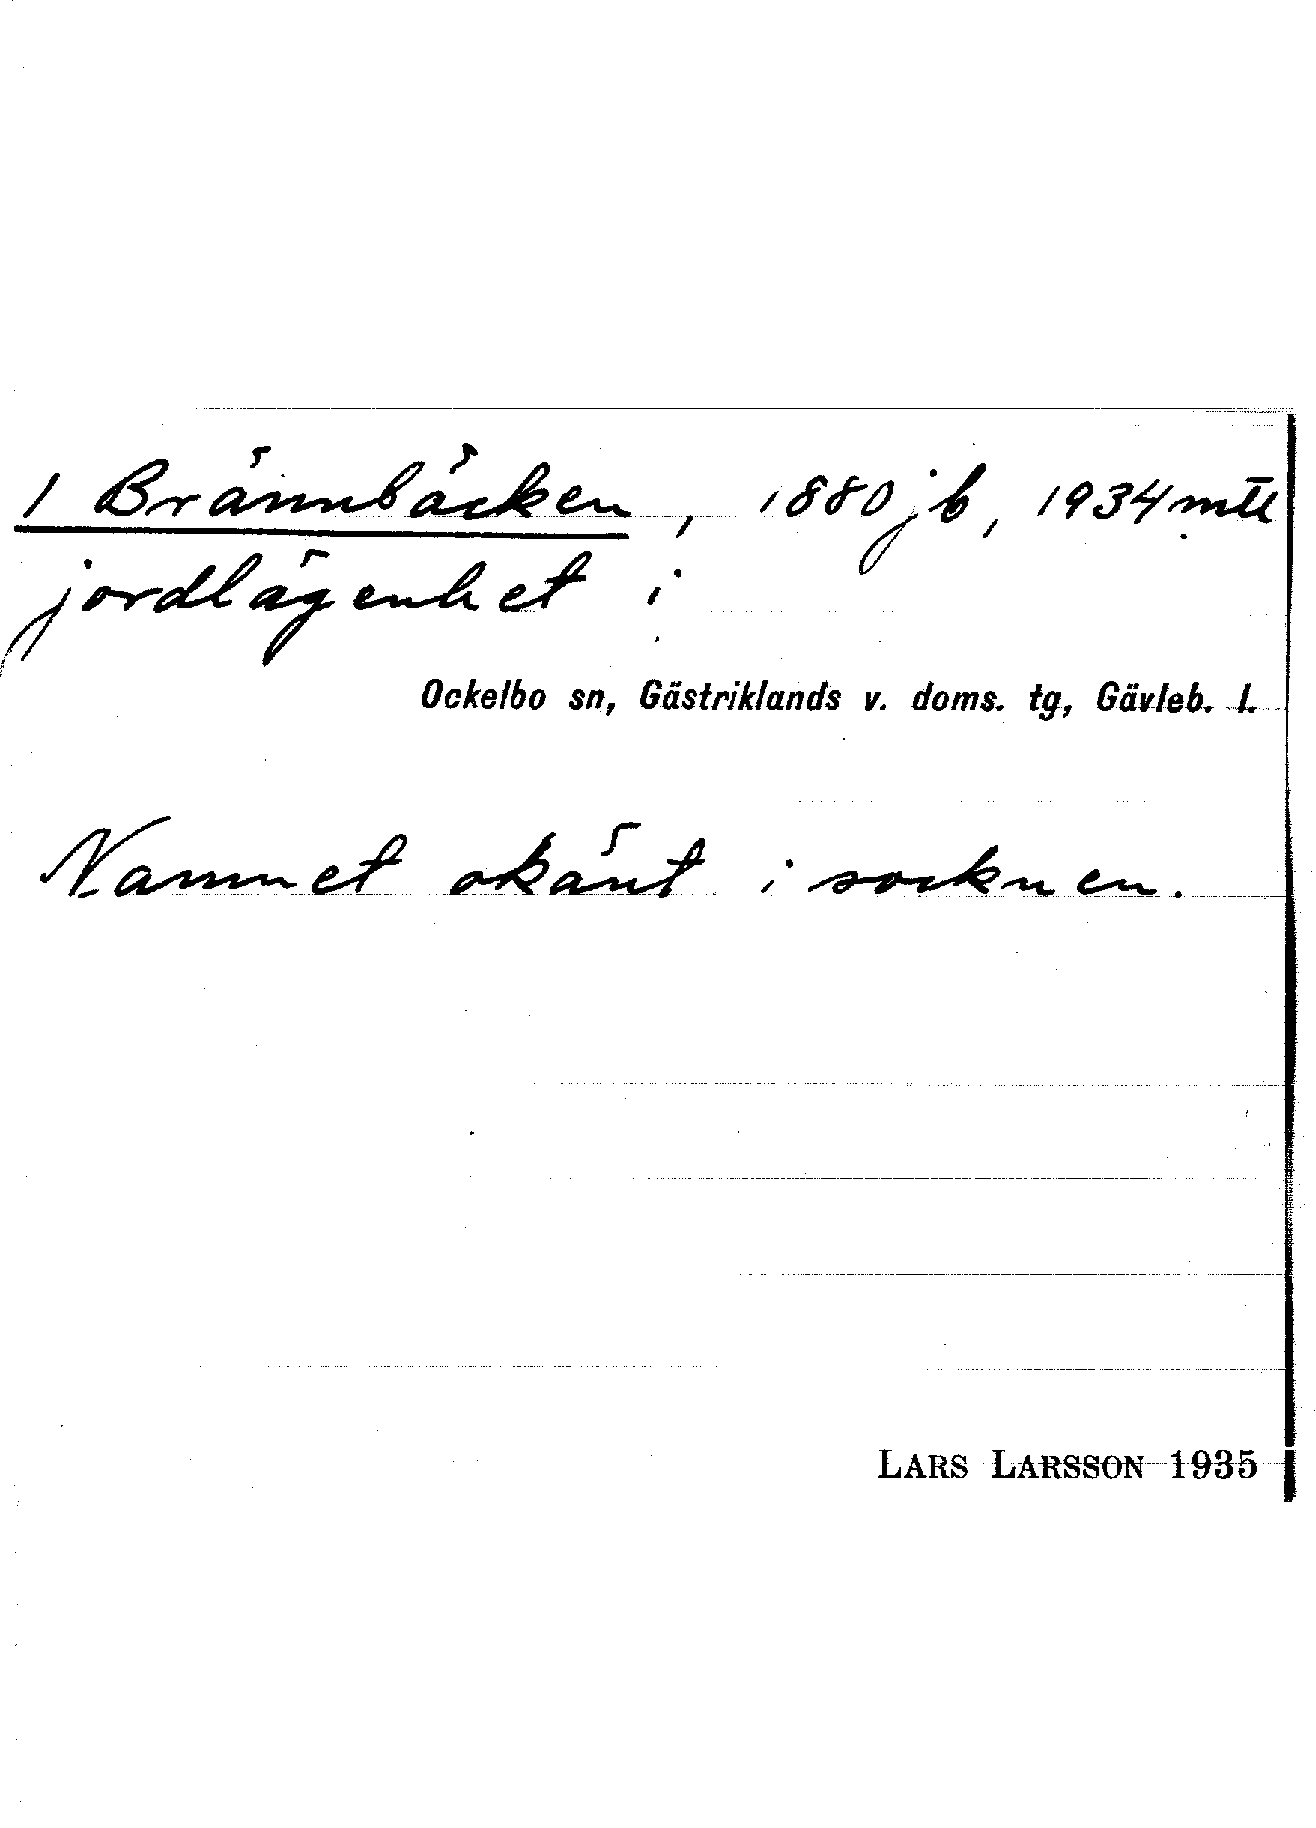 1 Brännbäcken, 1880 jb, 1934 mtl
jordlägenhet i
Ockelbo sn, Gästriklands v. doms. tg, Gävleb. l.
Namnet okänt i socknen.
LARS LARSSON 1935